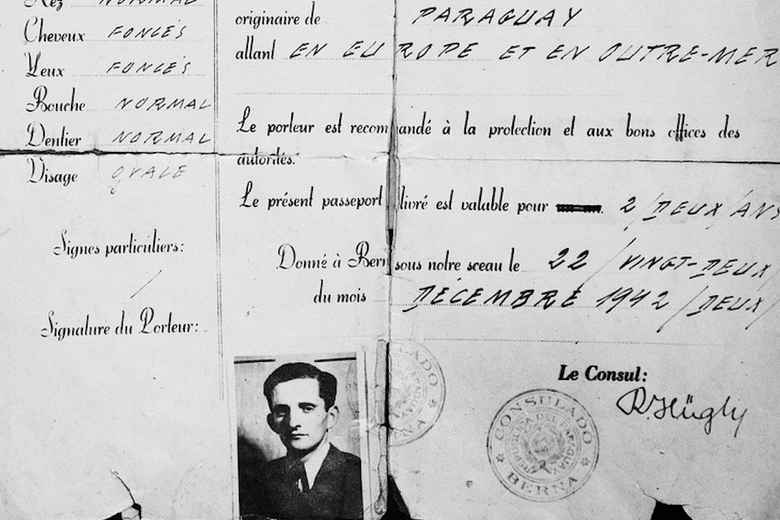 Nez NORMAL
Cheveux FONCÉS
Yeux FONCÉS
Bouche NORMAL
Dentier NORMAL
Visage OVALE
Signes particuliers:
Signature du Porteur:
originaire de PARAGUAY
allant EN EUROPE ET EN OUTRE-MER
Le porteur est recommandé à la protection et aux bons offices des
autorités.
Le présent passeport livré est valable pour 2/DEUX/ANS
Donné à Bern sous notre sceau le 22/VINGT-DEUX/
du mois DÉCEMBRE 1942/DEUX/
Le Consul:
R. Hügly
CONSULADO
REPUBLICA DEL PARAGUAY
BERNA